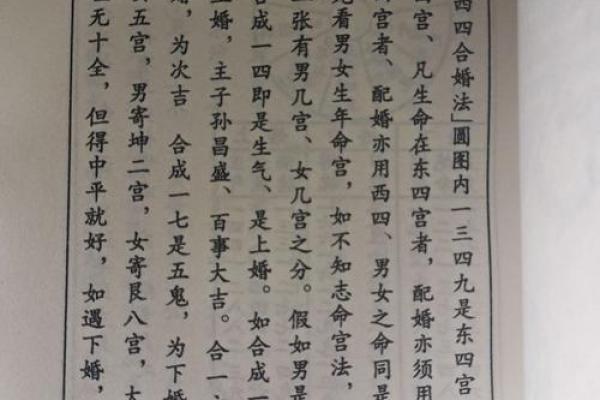 西四合婚法」圓图内一三四九是东四宫
宫、凡生命在东四宫者，配婚亦须用
宫者、配婚亦用西四、男女之命同是
看男女生年命宫，如不知志命宫法，
张有男几宫、女几宫之分。假如男是
合成一四即是生气、是上婚。如合成一
婚，主子孙昌盛、百事大吉。合一
婚，为次吉 合成一七是五鬼，为下婚
五宫，男寄坤二宫，女寄艮八宫，大
无十全，但得中平就好，如遇下婚，